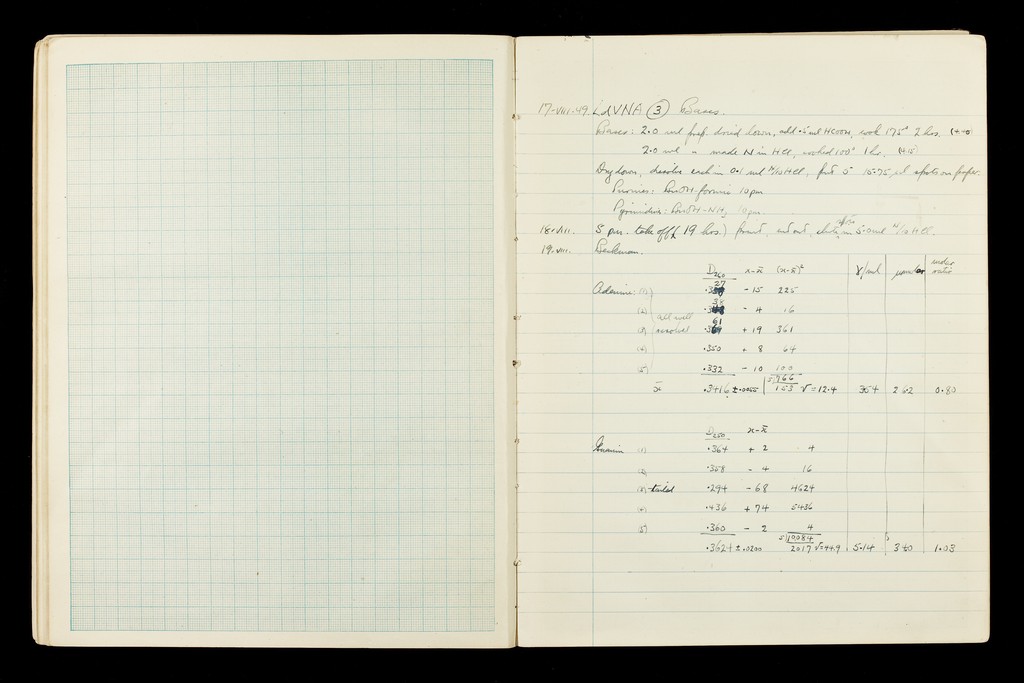 17-VIII-49 LdVNA ③ Bases.
Bases: 2.0 ml prep. dried down, add .5 ml HCOOH, cook 175° 2 hrs.
2.0 ml " made N in HCl, cooked 100° 1 hr.
Dry down, dissolve each in 0.1 ml N/10 HCl, 5 15.75 µl spots on paper.
Purines: BuOH-formic 10 pm
Pyrimidines: BuOH-NH3 10 pm
18.VIII. 5 pm. take off (19 hrs.) cut out, elute in 5.0 ml N/10 HCl.
19.VIII. Beckman.
D260 x-x̄ (x-x̄)² γ/ml µm under ratio
Adenine: (1) .327 - 15 225
(2) .338 - 4 16
all well
(3) resolved .361 + 19 361
(4) .350 + 8 64
(5) .332 - 10 100
5)766
x̄ .3416 ± .0055 153 √=12.4 354 262 0.80
D250 x-x̄
Guanine (1) .364 + 2 4
(2) .358 - 4 16
(3) - tailed .294 - 68 4624
(4) .436 + 74 5436
(5) .360 - 2 4
5)10084
.3624 ± .0200 2017 √=44.9 5.14 340 1.03